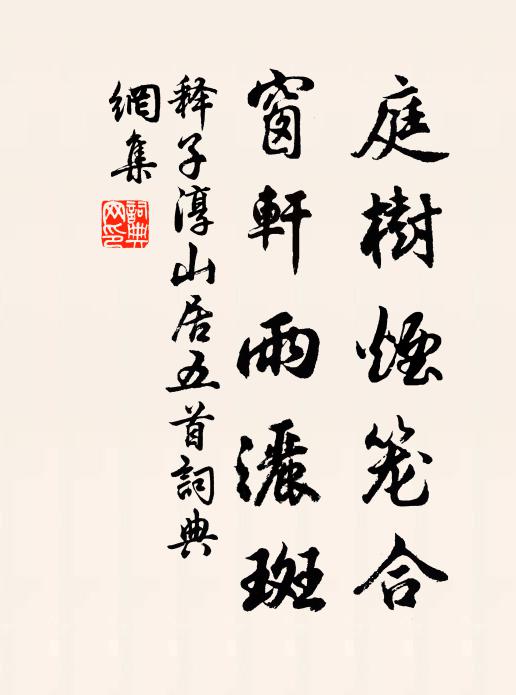 庭樹煙笼合
窗軒雨灑斑
释子淳山居五首詞典
網集
詞典網印